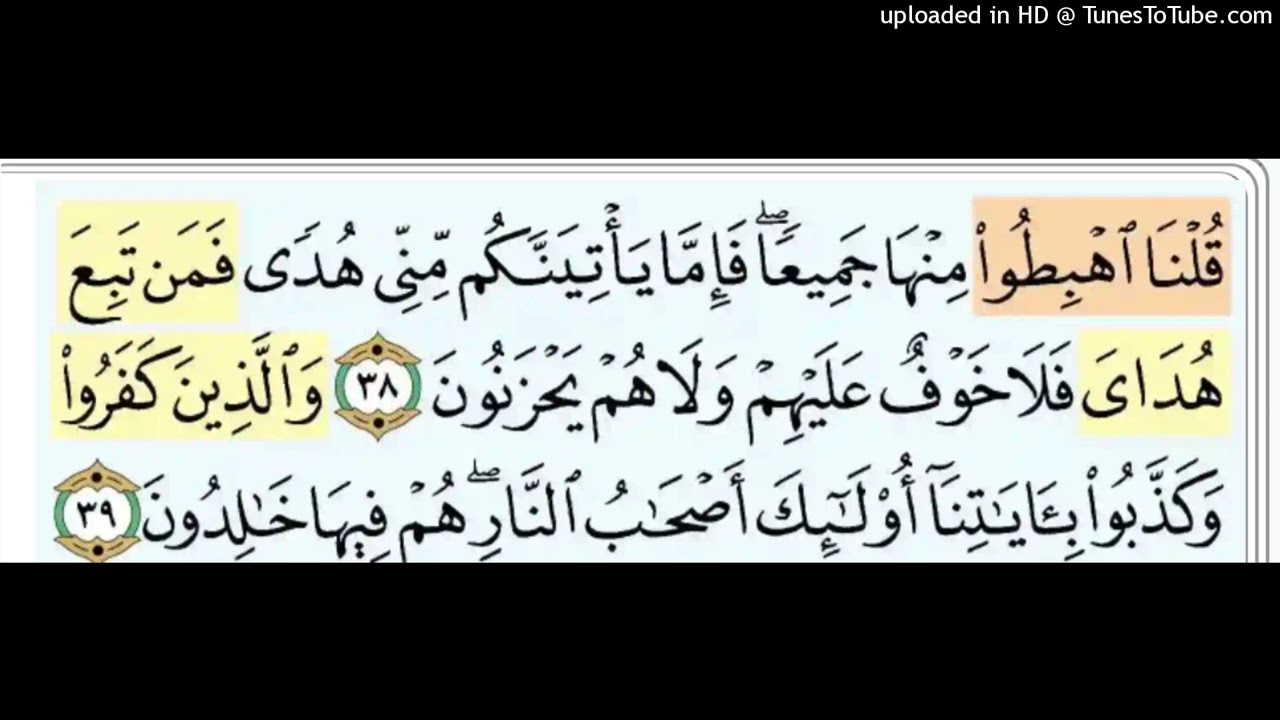 uploaded in HD @ TunesToTube.com
قُلْنَا ٱهْبِطُوا۟ مِنْهَا جَمِيعًاۖ فَإِمَّا يَأْتِيَنَّكُم مِّنِّى هُدًى فَمَن تَبِعَ
هُدَاىَ فَلَا خَوْفٌ عَلَيْهِمْ وَلَا هُمْ يَحْزَنُونَ ٣٨ وَٱلَّذِينَ كَفَرُوا۟
وَكَذَّبُوا۟ بِـَٔايَـٰتِنَآ أُو۟لَـٰٓئِكَ أَصْحَـٰبُ ٱلنَّارِۖ هُمْ فِيهَا خَـٰلِدُونَ ٣٩